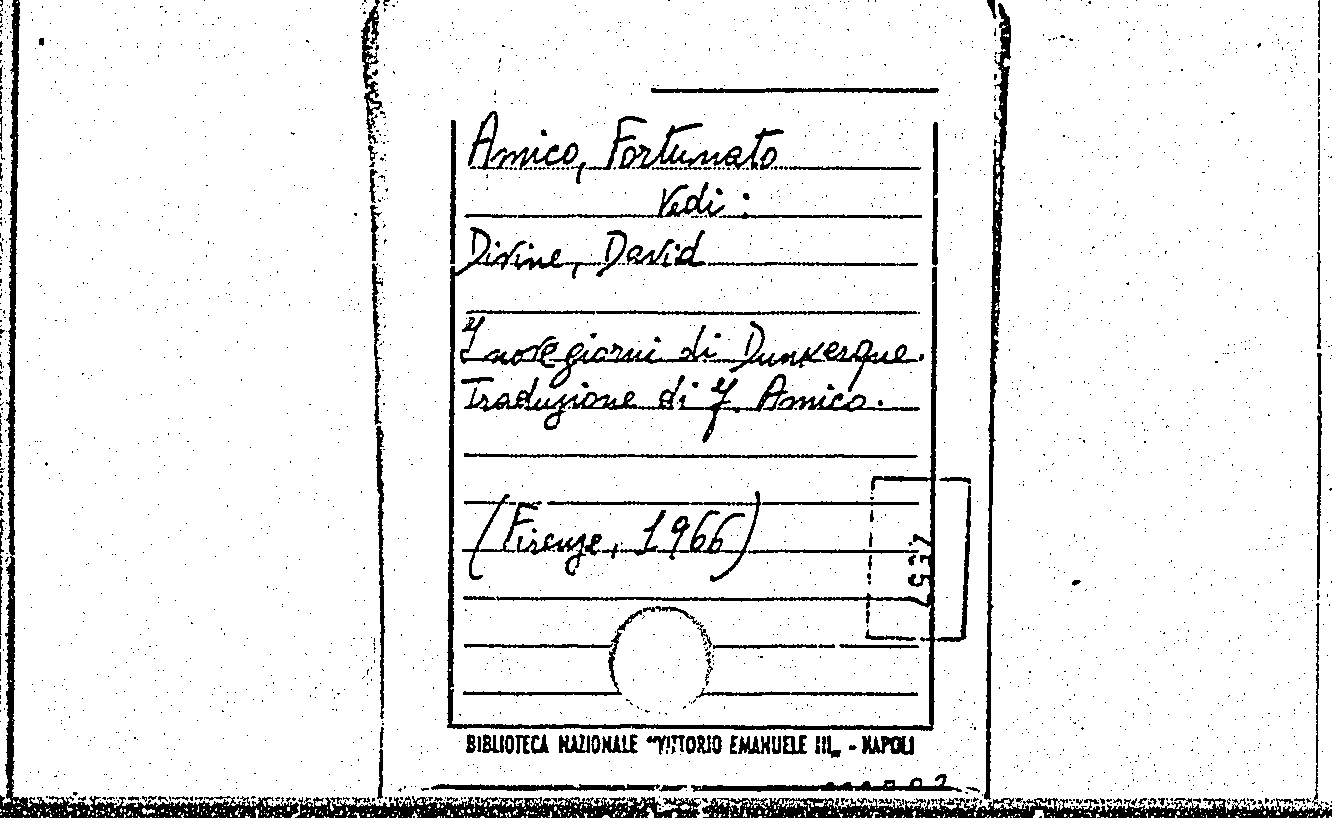 Amico, Fortunato
Vedi :
Divine, David
I nove giorni di Dunkerque.
Traduzione di F. Amico.
(Firenze, 1966)
BIBLIOTECA NAZIONALE "VITTORIO EMANUELE III„ - NAPOLI